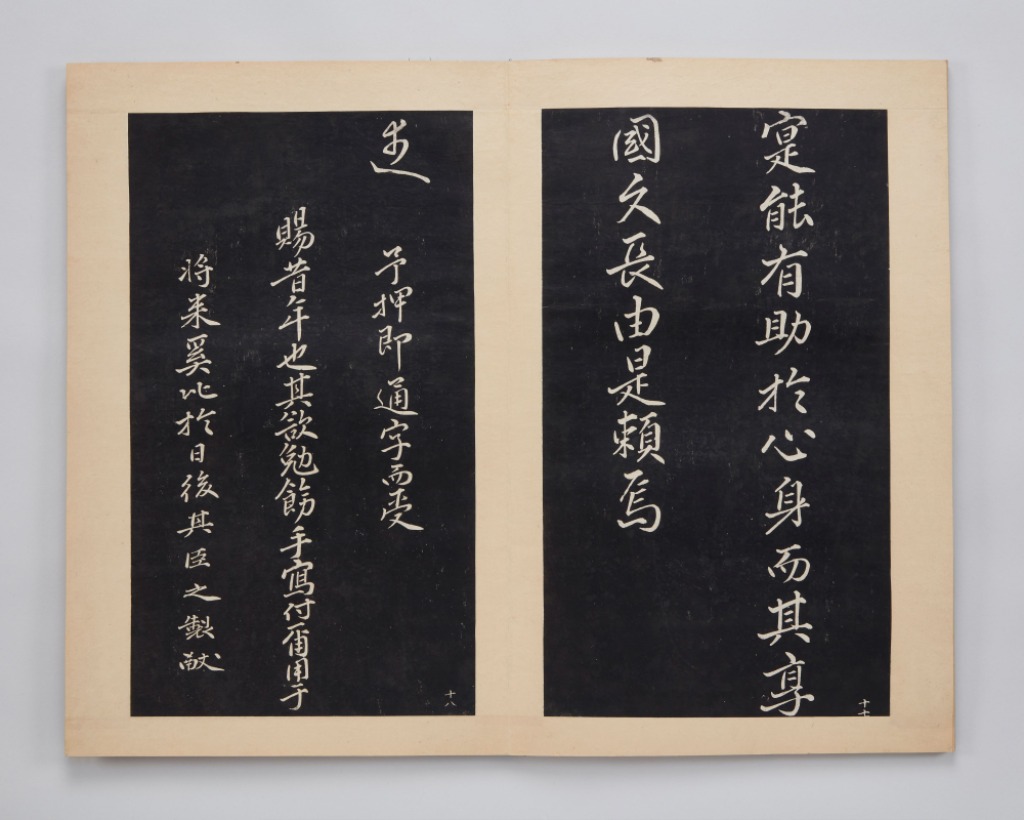 寔能有助於心身而其享
國久長由是賴焉
十七
予押即通字而受
賜昔年也其欲勉飭手寫付
用于
將來奚比於日後其臣之製
十八